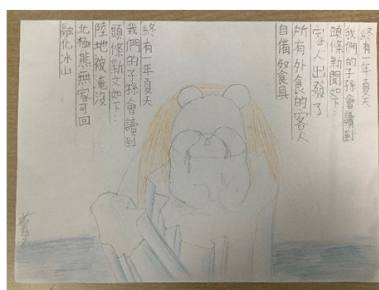 終有一年夏天
我們的子孫會讀到
頭條新聞如下:
客人出發了
所有外食的客人
自備餐具
終有一年夏天
我們的子孫會讀到
頭條新聞如下:
陸地被淹沒
北極熊無家可回
融化冰山